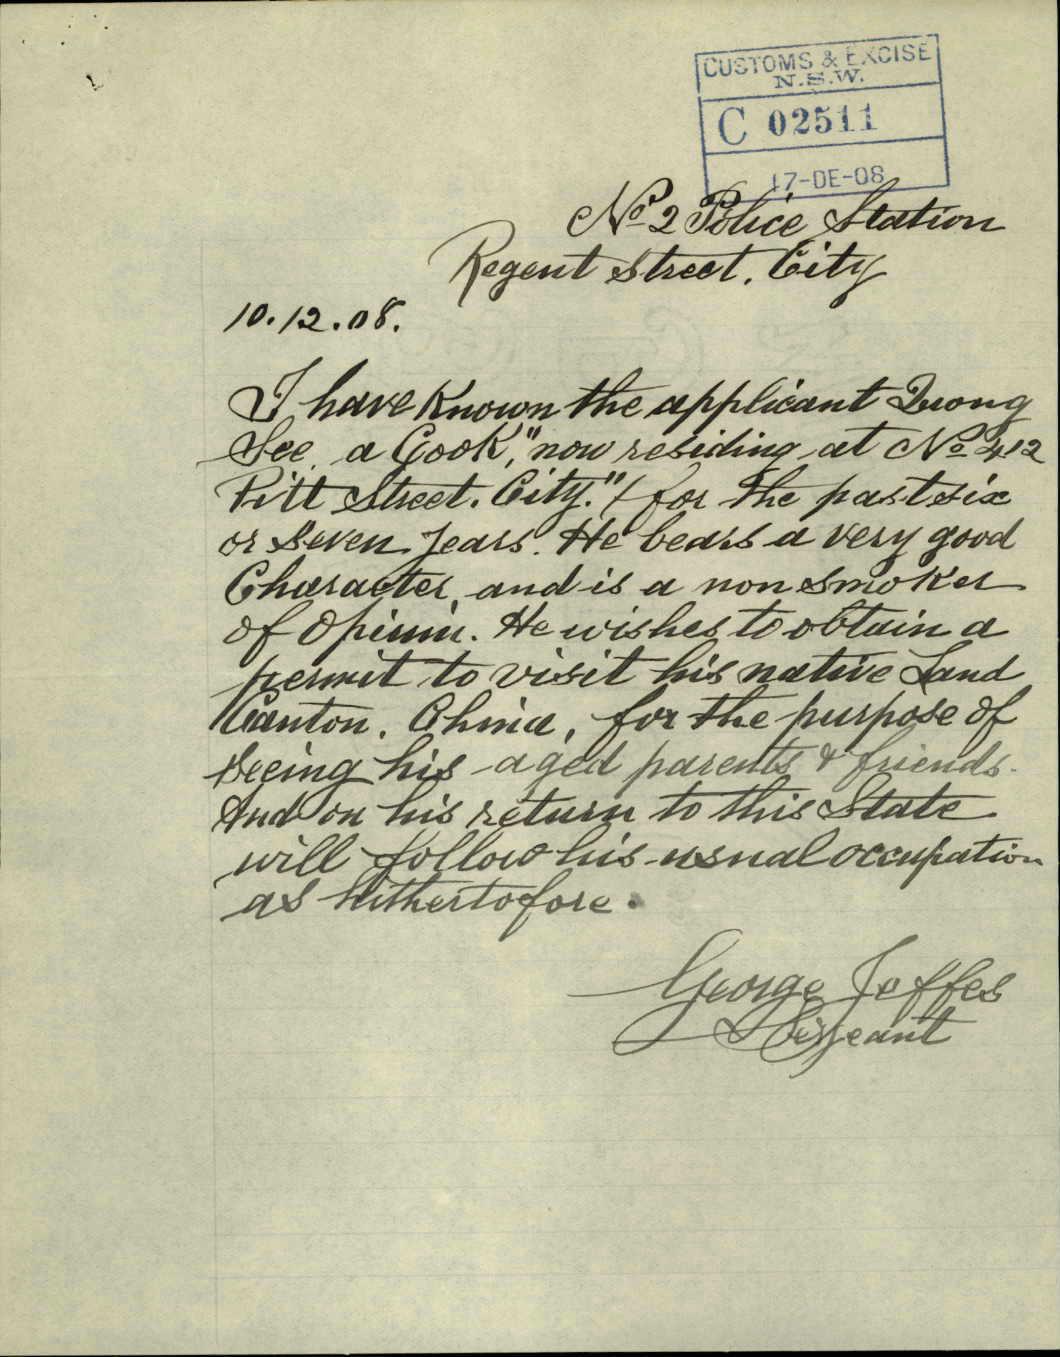 CUSTOMS & EXCISE
N.S.W.
C 02511
17-DE-08
No 2 Police Station
Regent Street. City
10.12.08.
I have Known the applicant Quong
See, a Cook, "now residing at No 412
Pitt Street. City." for the past six
or Seven Years. He bears a very good
Character, and is a non smoker
of Opium. He wishes to obtain a
permit to visit his native Land
Canton. China, for the purpose of
seeing his aged parents & friends.
And on his return to this State
will follow his usual occupation
as hithertofore.
George Jeffes
Sergeant